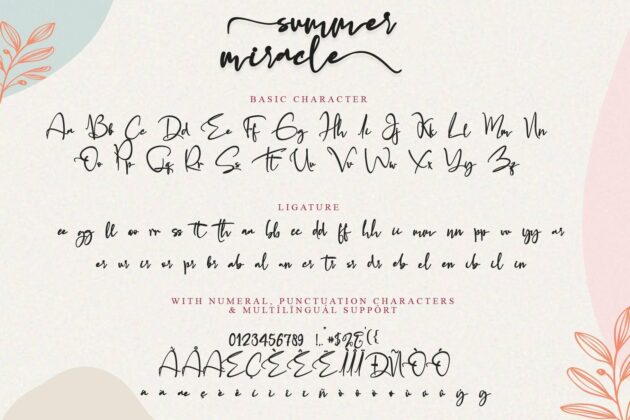 summer
miracle
BASIC CHARACTER
Aa Bb Cc Dd Ee Ff Gg Hh Ii Jj Kk Ll Mm Nn
Oo Pp Qq Rr Ss Tt Uu Vv Ww Xx Yy Zz
LIGATURE
ee gg ll oo rr ss tt th aa bb cc dd ff hh ii mm nn pp vv yy ar
er ur ir or pr br ab al an en tr sr dr eb el en ib il in
WITH NUMERAL, PUNCTUATION CHARACTERS
& MULTÍLÌNGUÁL SUPPÖRT
0123456789
ÀÅÆÇÈÉÊ